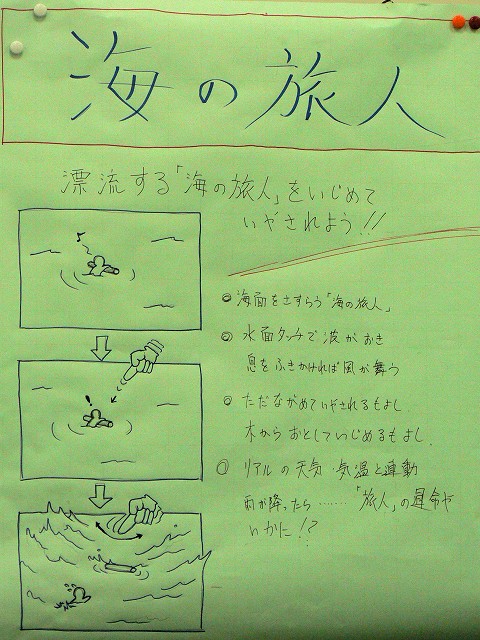 海の旅人
漂流する「海の旅人」をいじめて
いやされよう!!
◎ 海面をさすらう「海の旅人」
◎ 水面タッチで波がおき
息をふきかければ風が舞う
◎ ただながめていやされるもよし
木からおとしていじめるもよし
◎ リアルの天気・気温と連動
雨が降ったら……「旅人」の運命や
いかに!?
♪
!